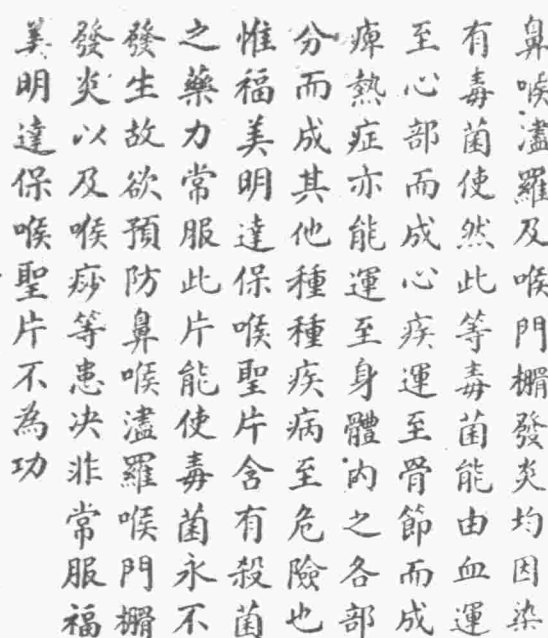 鼻喉濜羅及喉門榍發炎均因染
有毒菌使然此等毒菌能由血運
至心部而成心疾運至骨節而成
痺熱症亦能運至身體內之各部
分而成其他種種疾病至危險也
惟福美明達保喉聖片含有殺菌
之藥力常服此片能使毒菌永不
發生故欲預防鼻喉濜羅喉門榍
發炎以及喉痧等患决非常服福
美明達保喉聖片不為功